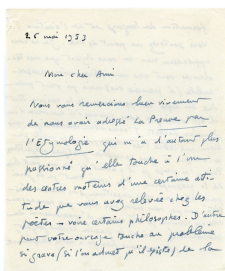 25 mai 1953
Mon cher Ami
Nous vous remercions bien vivement
de nous avoir adressé La Preuve par
l'Etymologie qui m'a d'autant plus
passionné qu'elle touche à l'un
des autres moteurs d'une certaine atti-
tude que vous avez relevée chez les
poètes - voire certains philosophes. D'autre
part votre ouvrage touche au problème
si grave (si l'on admet qu'il existe) de la